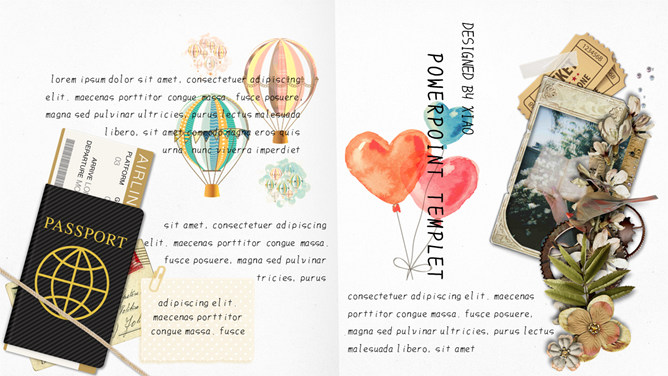 lorem ipsum dolor sit amet, consectetuer adipiscing
elit. maecenas porttitor congue massa. fusce posuere,
magna sed pulvinar ultricies, purus lectus malesuada
libero, sit amet commodo magna eros quis
urna. nunc viverra imperdiet
AIRLIN
PLATFORM
03
ARRIVE LO
DEPARTURE M
PASSPORT
sit amet, consectetuer adipiscing
elit. maecenas porttitor congue massa.
fusce posuere, magna sed pulvinar
tricies, purus
adipiscing elit.
maecenas porttitor
congue massa. fusce
DESIGNED BY XIAO
POWERPOINT TEMPLET
1234568
consectetuer adipiscing elit. maecenas
porttitor congue massa. fusce posuere,
magna sed pulvinar ultricies, purus lectus
malesuada libero, sit amet